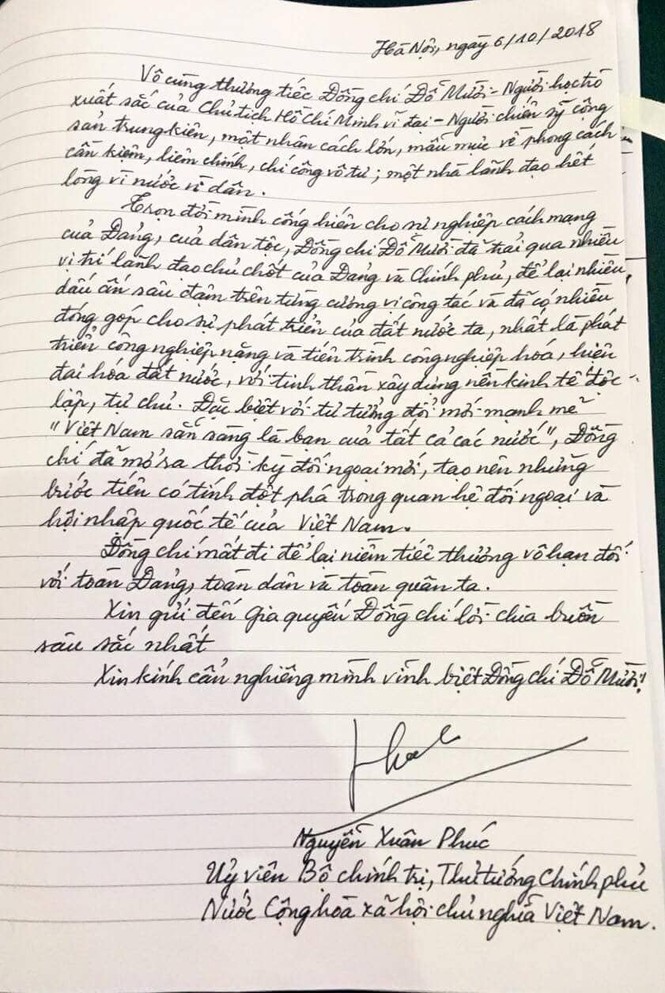 Hà Nội, ngày 6/10/2018
Vô cùng thương tiếc Đồng chí Đỗ Mười - Người học trò
xuất sắc của Chủ tịch Hồ Chí Minh vĩ đại - Người chiến sỹ cộng
sản trung kiên, một nhân cách lớn, mẫu mực về phong cách
cần kiệm, liêm chính, chí công vô tư; một nhà lãnh đạo hết
lòng vì nước vì dân.
Trọn đời mình cống hiến cho sự nghiệp cách mạng
của Đảng, của dân tộc, Đồng chí Đỗ Mười đã trải qua nhiều
vị trí lãnh đạo chủ chốt của Đảng và Chính phủ, để lại nhiều
dấu ấn sâu đậm trên từng cương vị công tác và đã có nhiều
đóng góp cho sự phát triển của đất nước ta, nhất là phát
triển công nghiệp nặng và tiến trình công nghiệp hóa, hiện
đại hóa đất nước, với tinh thần xây dựng nền kinh tế độc
lập, tự chủ. Đặc biệt với tư tưởng đổi mới mạnh mẽ
"Việt Nam sẵn sàng là bạn của tất cả các nước", Đồng
chí đã mở ra thời kỳ đối ngoại mới, tạo nên những
bước tiến có tính đột phá trong quan hệ đối ngoại và
hội nhập quốc tế của Việt Nam.
Đồng chí mất đi để lại niềm tiếc thương vô hạn đối
với toàn Đảng, toàn dân và toàn quân ta.
Xin gửi đến gia quyến Đồng chí lời chia buồn
sâu sắc nhất
Xin kính cẩn nghiêng mình vĩnh biệt Đồng chí Đỗ Mười!
Nguyễn Xuân Phúc
Uỷ viên Bộ chính trị, Thủ tướng Chính phủ
Nước Cộng hòa xã hội chủ nghĩa Việt Nam.